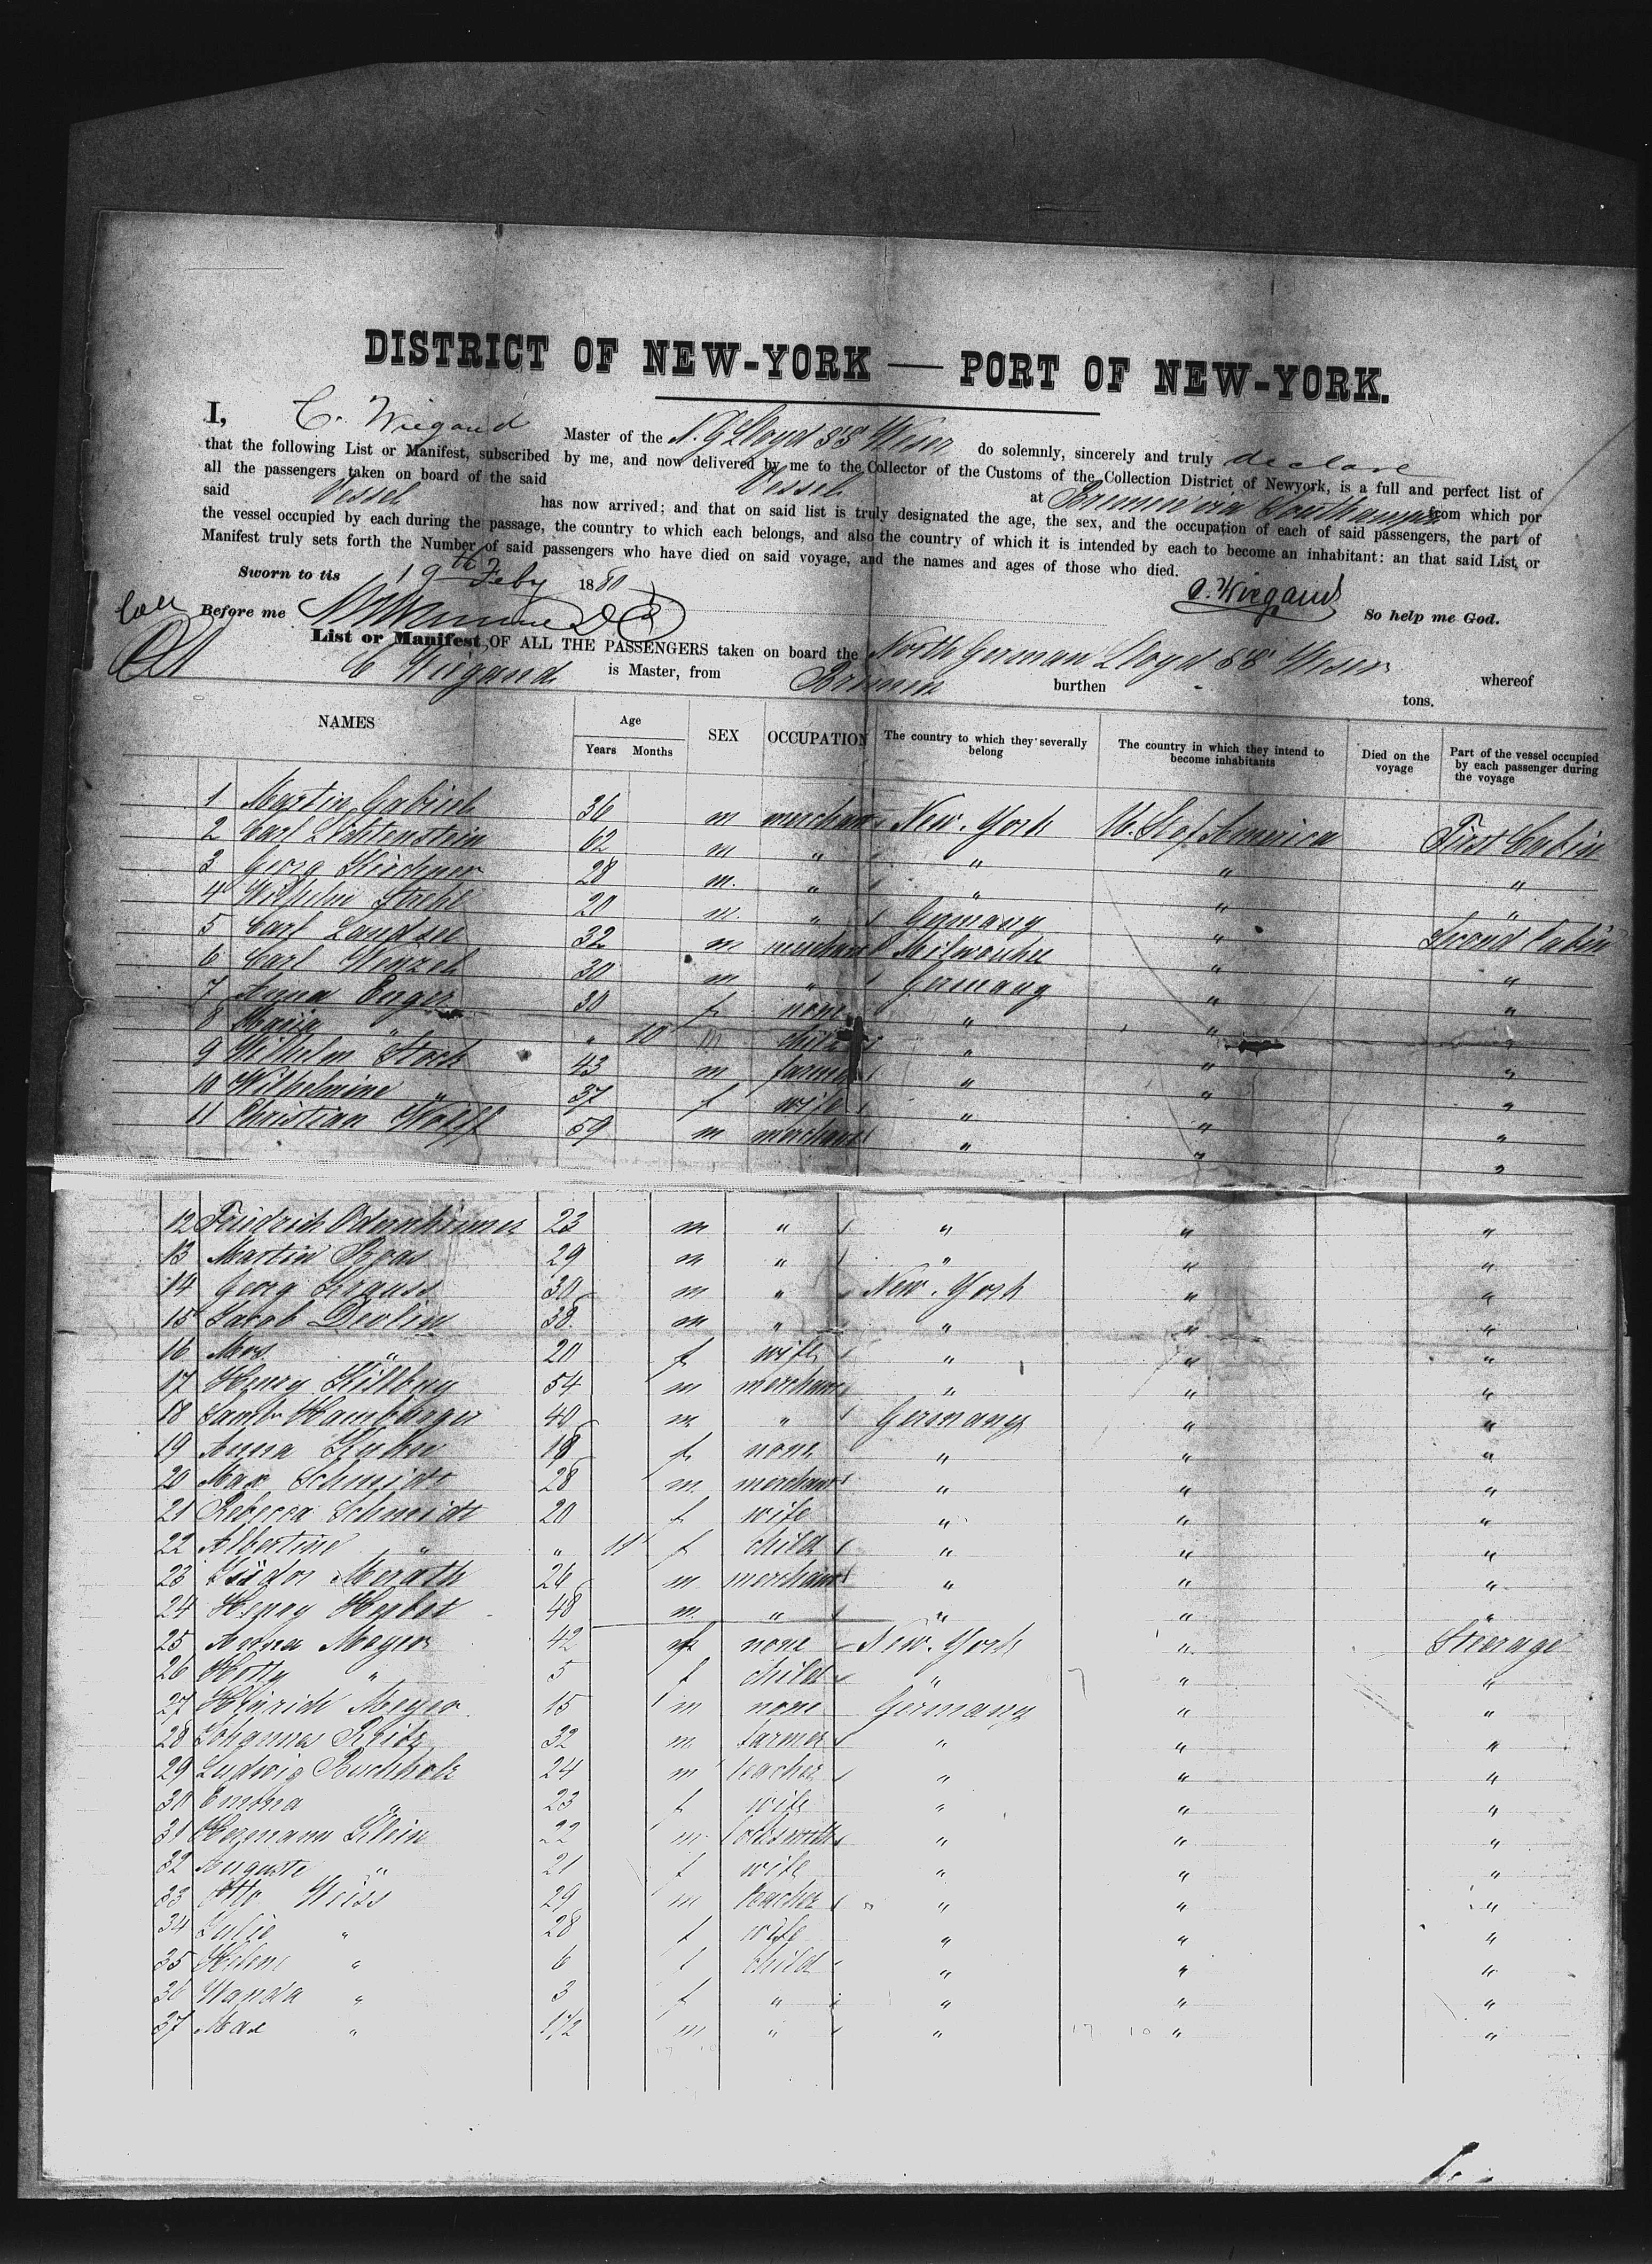 DISTRICT OF NEW-YORK — PORT OF NEW-YORK.
I, C. Wiegand Master of the N. G Lloyd SS Weser do solemnly, sincerely and truly declare
that the following List or Manifest, subscribed by me, and now delivered by me to the Collector of the Customs of the Collection District of Newyork, is a full and perfect list of
all the passengers taken on board of the said Vessel at Bremen via Southampton from which por
said Vessel has now arrived; and that on said list is truly designated the age, the sex, and the occupation of each of said passengers, the part of
the vessel occupied by each during the passage, the country to which each belongs, and also the country of which it is intended by each to become an inhabitant: an that said List, or
Manifest truly sets forth the Number of said passengers who have died on said voyage, and the names and ages of those who died.
Sworn to tis 19th Feby 1880 C. Wiegand So help me God.
Before me
List or Manifest, OF ALL THE PASSENGERS taken on board the North German Lloyd SS Weser whereof
C Wiegand is Master, from Bremen burthen tons.
NAMES Age Years Months SEX OCCUPATION The country to which they severally belong The country in which they intend to become inhabitants Died on the voyage Part of the vessel occupied by each passenger during the voyage
1 Martin Gabriel 36 m merchant New. York U. St of America First Cabin
2 Carl Lichtenstein 62 m " " " "
3 Georg Kirchner 28 m. " " " "
4 Wilhelm Strehl 20 m. " Germany " Second Cabin
5 Carl Landsee 32 m merchant Milwaukee " "
6 Carl Wenzel 30 m " Germany " "
7 Anna Enger 30 f none " " "
8 Maria " " 10 m child " " "
9 Wilhelm Stock 43 m farmer " " "
10 Wilhelmine " 37 f wife " " "
11 Christian Wolff 59 m merchant " " "
12 Friedrich Odernheimer 23 m " " " "
13 Martin Roas 29 m " " " "
14 Georg Krauss 30 m " New. York " "
15 Jacob Devlin 38 m " " " "
16 Mrs. " 20 f wife " " "
17 Henry Killbug 54 m merchant " " "
18 Saml. Hamburger 40 m " Germany " "
19 Anna Huber 18 f none " " "
20 Max Schmidt 28 m merchant " " "
21 Rebecca Schmidt 20 f wife " " "
22 Albertine " " 11 f child " " "
23 Isidor Merath 26 m merchant " " "
24 Henry Herbst 48 m " " " "
25 Anna Meyer 42 f none New. York " Steerage
26 Hetty " 5 f child " " "
27 Heinrich Meyer 15 m none Germany " "
28 Johannes Reitz 32 m farmer " " "
29 Ludwig Buchholz 24 m teacher " " "
30 Emma " 23 f wife " " "
31 Hermann Klein 22 m " " "
32 Auguste " 21 f wife " " "
33 Otto Weiss 29 m teacher " " "
34 Julie " 28 f wife " " "
35 Helene " 6 f child " " "
36 Wanda " 3 f " " " "
37 Max " 1 1/2 m " " " "